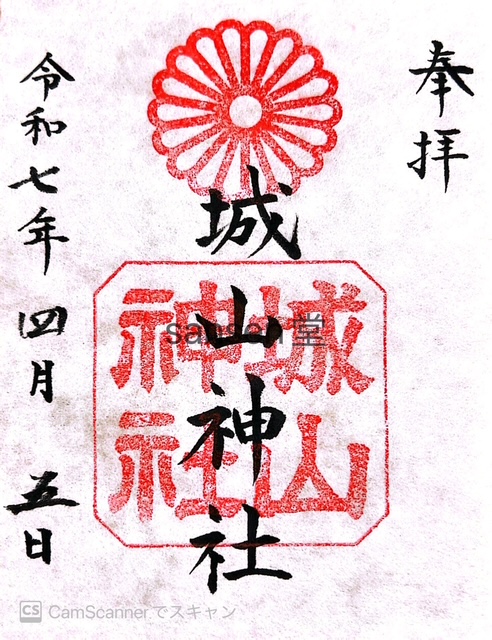 奉拝
城山神社
城山
神社
令和七年四月五日
sansen堂
CS CamScannerでスキャン